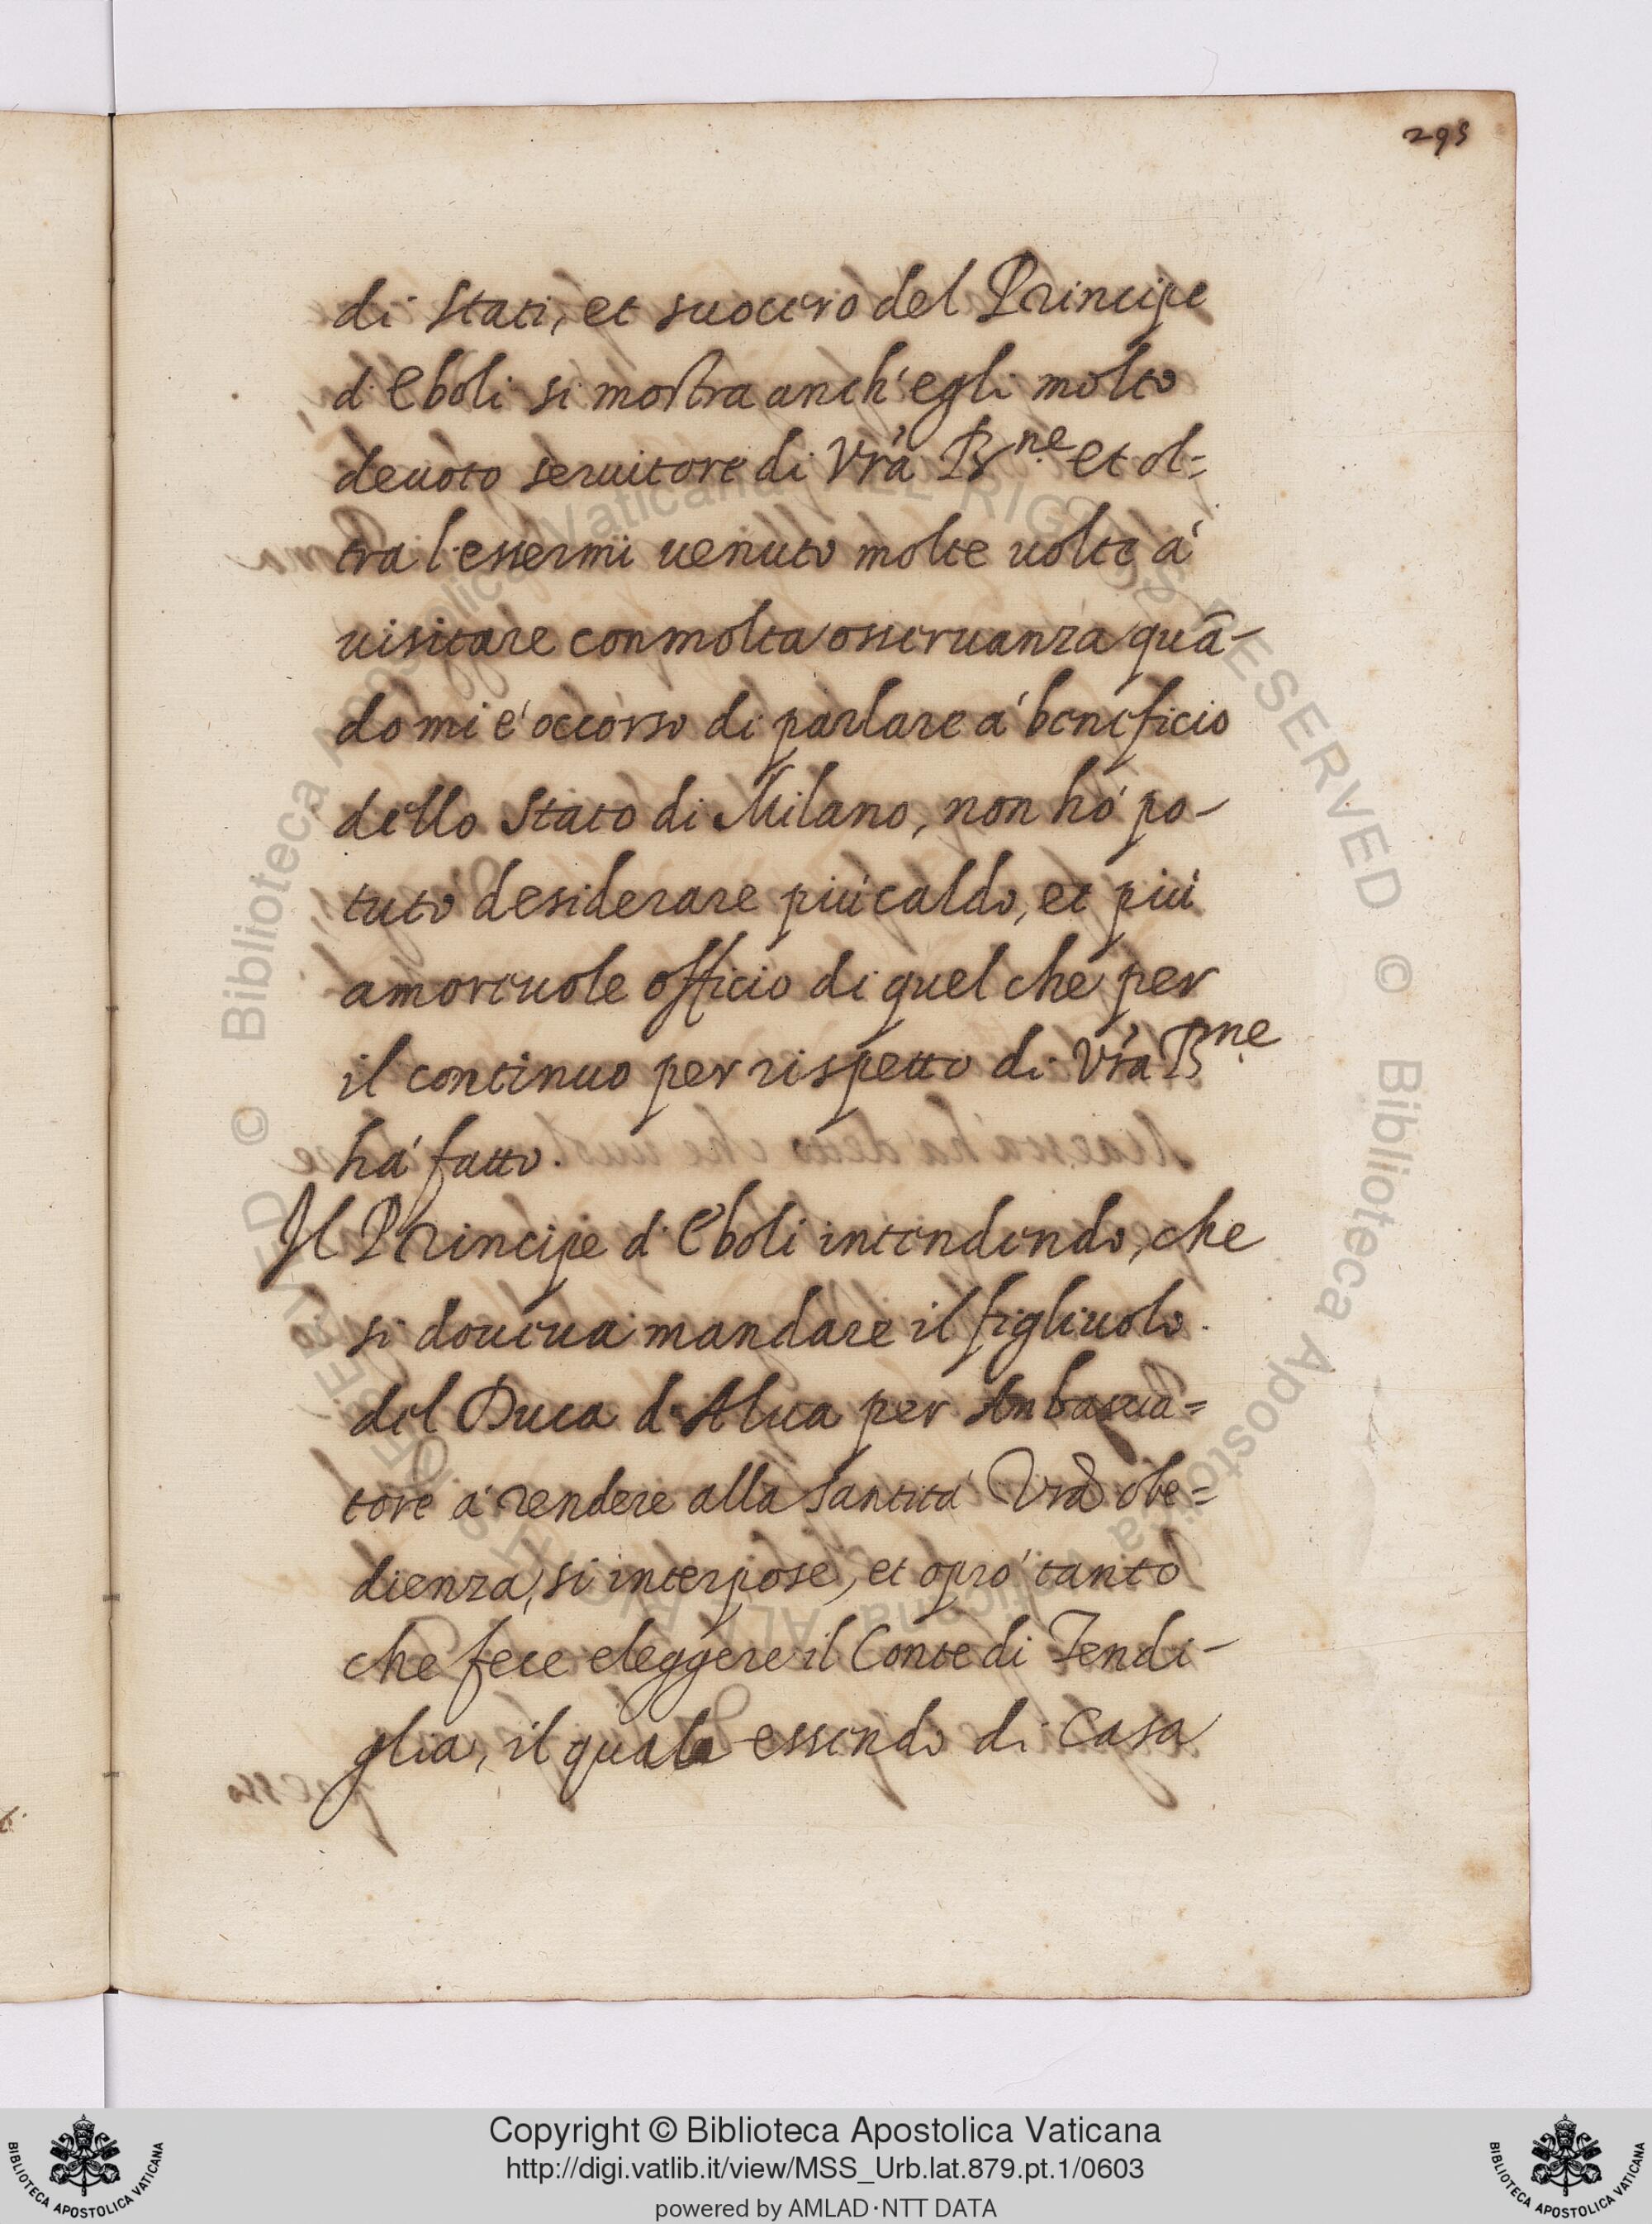 295
di Stati, et suocero del Principe
d'Eboli si mostra anch'egli molto
deuoto seruitore di Vrà B.ne et ol=
tra l'essermi uenuto molte uolte à
uisitare con molta osseruanza quā-
do mi è occorso di parlare à beneficio
dello Stato di Milano, non hò po-
tuto desiderare più caldo, et più
amoreuole officio di quel che per
il continuo per rispetto di Vrà B.ne
hà fatto.
Il Principe d'Eboli intendendo, che
si doueua mandare il figliuolo
del Duca d'Alua per Ambascia=
tore à rendere alla Santità Vrà obe=
dienza, si interpose, et oprò tanto
che fece eleggere il Conte di Tendi-
glia, il quale essendo di Casa
Copyright © Biblioteca Apostolica Vaticana
http://digi.vatlib.it/view/MSS_Urb.lat.879.pt.1/0603
powered by AMLAD·NTT DATA
BIBLIOTECA APOSTOLICA VATICANA
BIBLIOTECA APOSTOLICA VATICANA